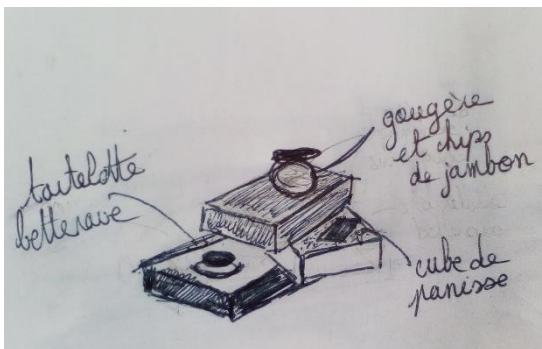 tartelette
betterave
gougère
et chips
de jambon
cube de
panisse